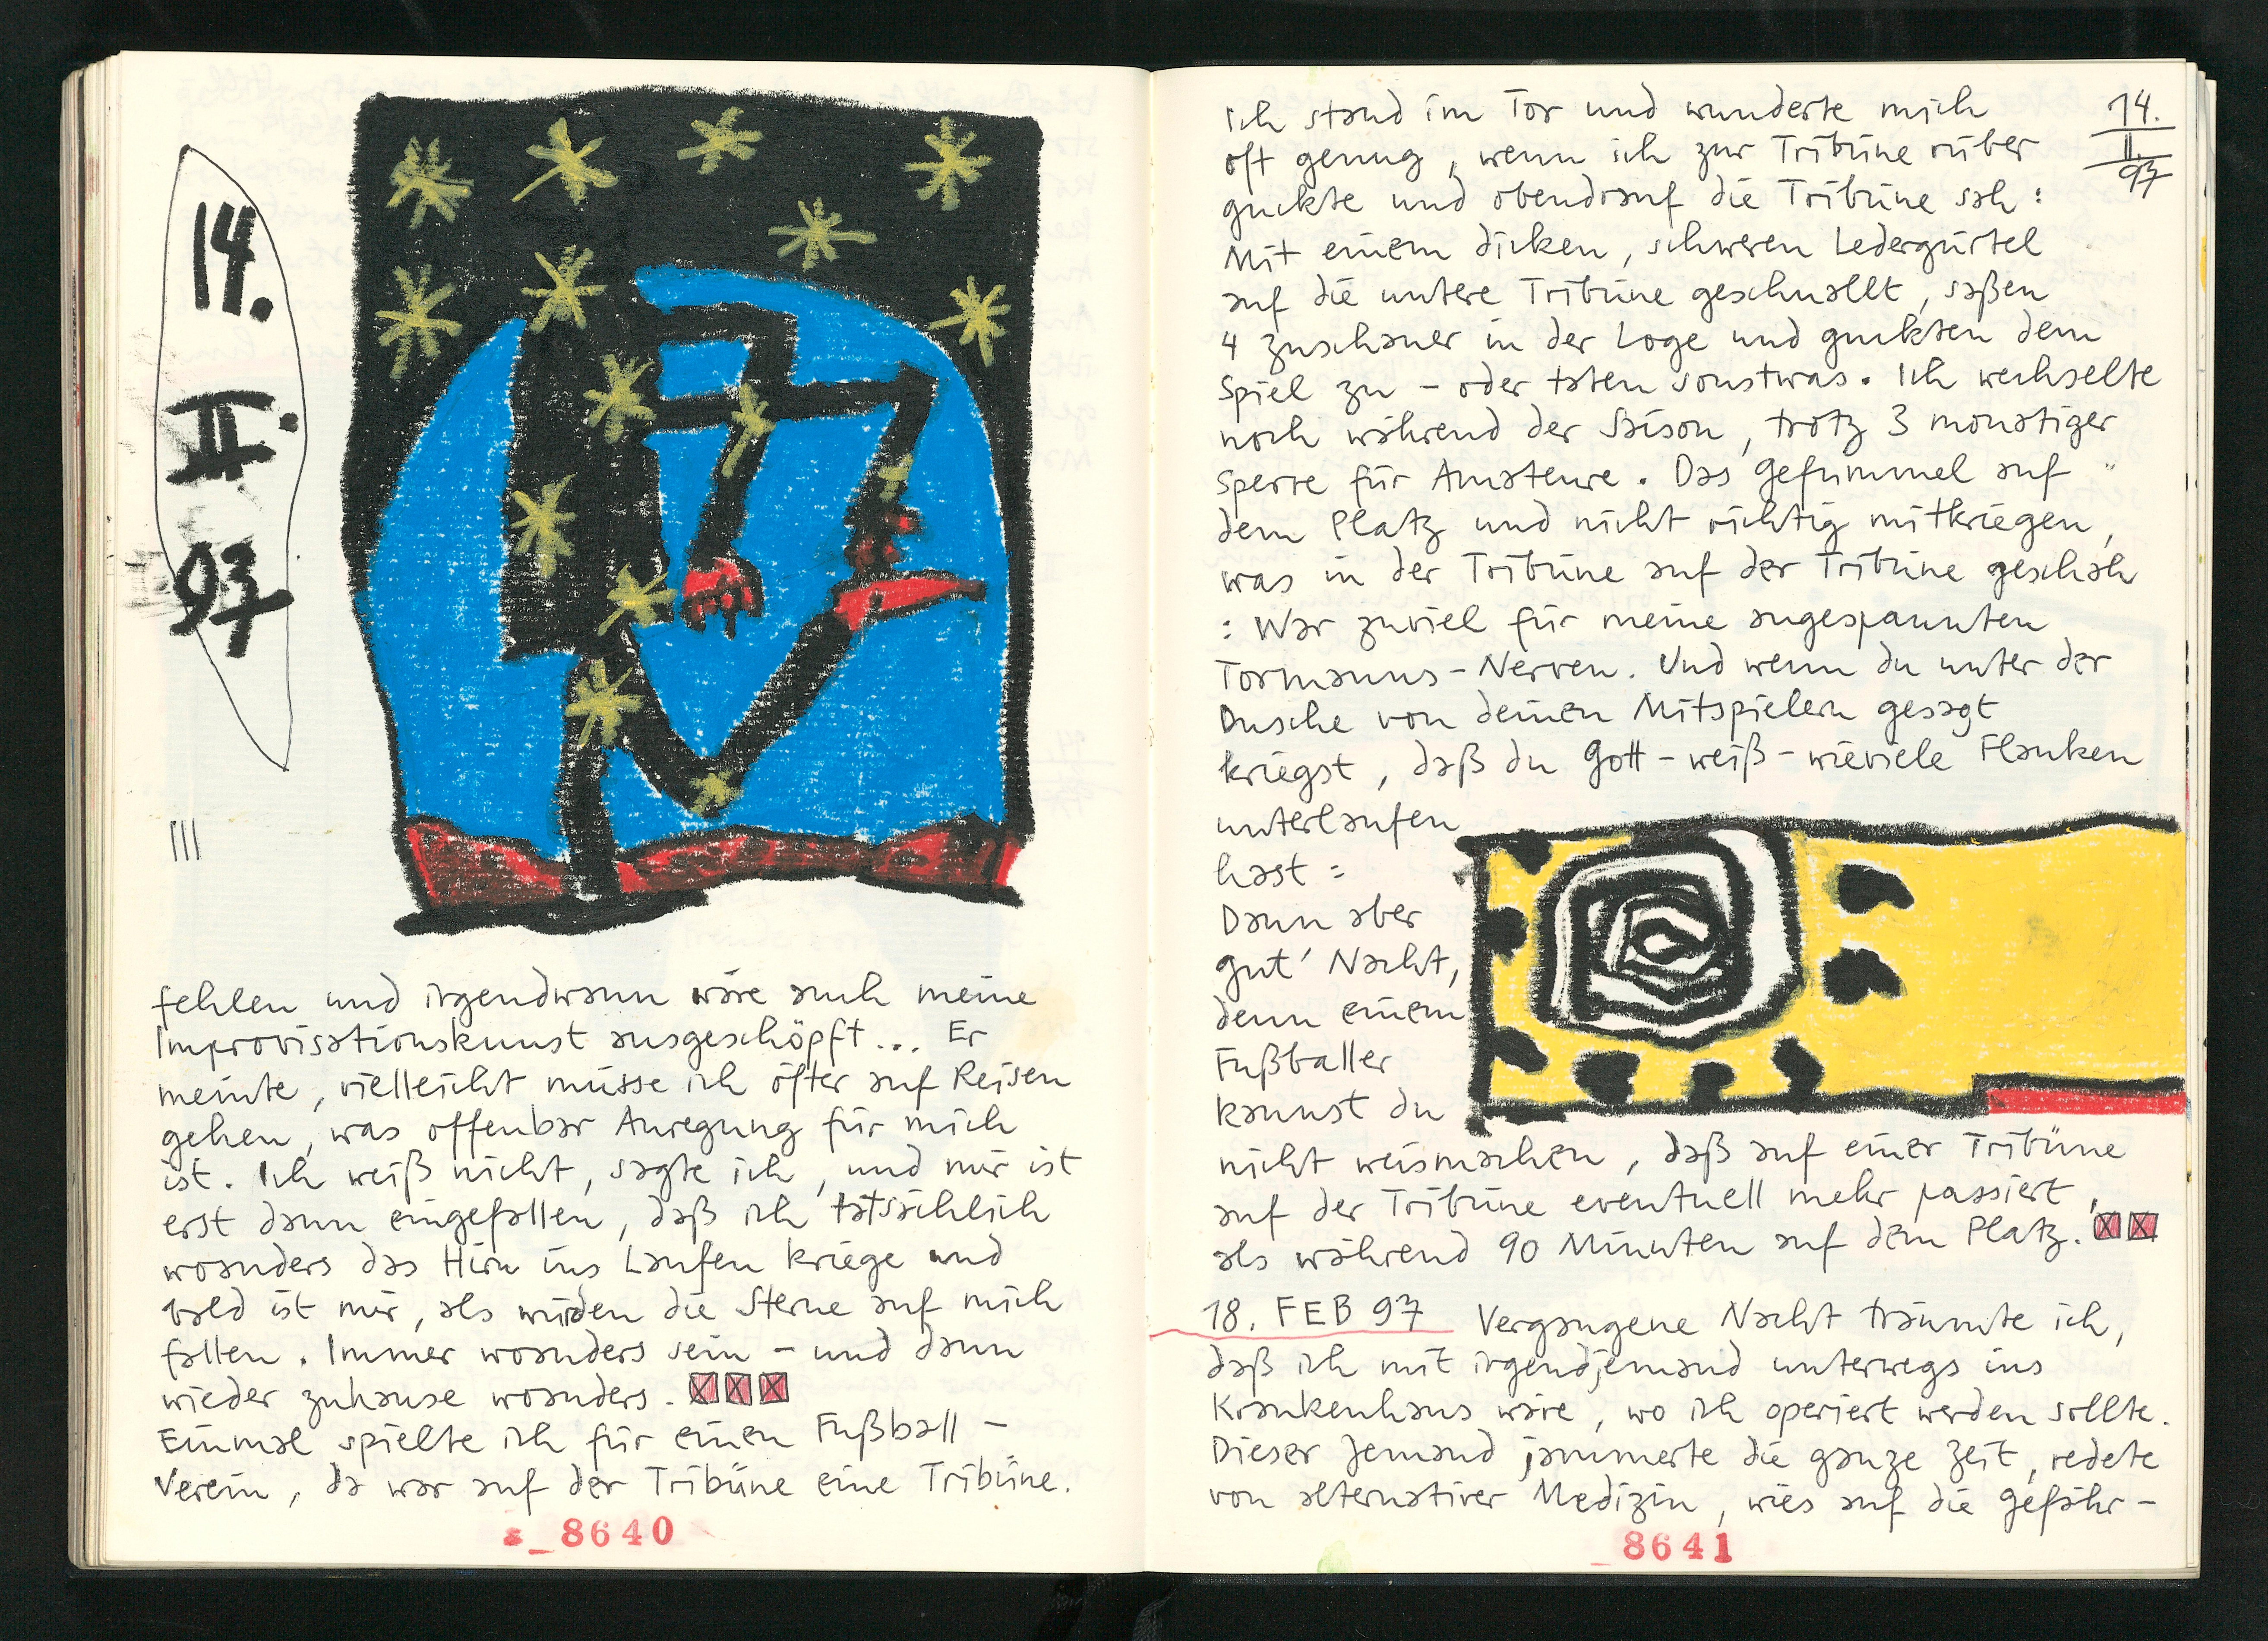 14.
II.
97
III
fehlen und irgendwann wäre auch meine
Improvisationskunst ausgeschöpft... Er
meinte, vielleicht müsse ich öfter auf Reisen
gehen, was offenbar Anregung für mich
ist. Ich weiß nicht, sagte ich, und mir ist
erst dann eingefallen, daß ich tatsächlich
woanders das Hirn ins Laufen kriege und
bald ist mir, als würden die Sterne auf mich
fallen. Immer woanders sein – und dann
wieder zuhause woanders.
Einmal spielte ich für einen Fußball-
Verein, da war auf der Tribüne eine Tribüne.
8640
14.
II.
97
Ich stand im Tor und wunderte mich
oft genug, wenn ich zur Tribüne rüber
guckte und obendrauf die Tribüne sah:
Mit einem dicken, schweren Ledergürtel
auf die untere Tribüne geschnallt, saßen
4 Zuschauer in der Loge und guckten dem
Spiel zu – oder taten sonstwas. Ich wechselte
noch während der Saison, trotz 3 monatiger
Sperre für Amateure. Das Gefummel auf
dem Platz und nicht richtig mitkriegen,
was in der Tribüne auf der Tribüne geschah
: War zuviel für meine angespannten
Tormanns-Nerven. Und wenn du unter der
Dusche von deinen Mitspielern gesagt
kriegst, daß du Gott-weiß-wieviele Flanken
unterlaufen
hast:
Dann aber
gut' Nacht,
denn einem
Fußballer
kannst du
nicht weismachen, daß auf einer Tribüne
auf der Tribüne eventuell mehr passiert,
als während 90 Minuten auf dem Platz.
18. FEB 97 Vergangene Nacht träumte ich,
daß ich mit irgendjemand unterwegs ins
Krankenhaus wäre, wo ich operiert werden sollte.
Dieser Jemand jammerte die ganze Zeit, redete
von alternativer Medizin, wies auf die Gefähr-
8641